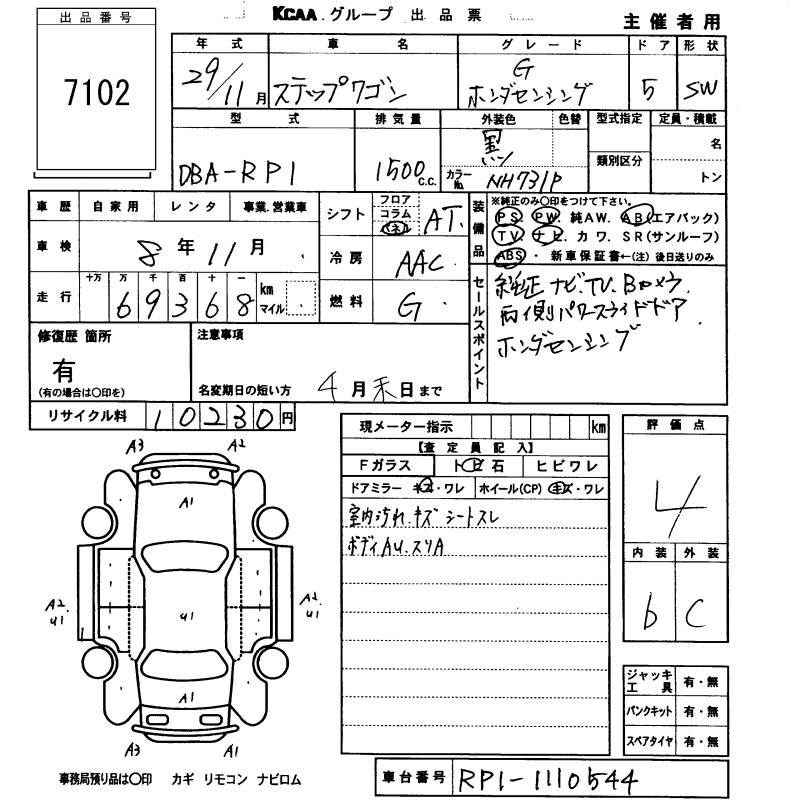 KCAA グループ 出品票
主催者用
出品番号
7102
年式 車名 グレード ドア 形状
29/11月 ステップワゴン G ホンダセンシング 5 SW
型式 排気量 外装色 色替 型式指定 定員・積載
DBA-RP1 1500c.c. 黒 カラーNo. NH731P 類別区分 名 トン
車歴 自家用 レンタ 事業.営業車
車検 8年11月
走行 十万 万 千 百 十 一
69368 km マイル
シフト フロア コラム パネル AT
冷房 AAC
燃料 G
装備品
※純正のみ〇印をつけて下さい。
PS PW. 純AW. AB(エアバック)
TV. ナビ. カワ. SR(サンルーフ)
ABS・ 新車保証書←(注) 後日送りのみ
セールスポイント
純正ナビ.TV.Bカメラ.
両側パワースライドドア
ホンダセンシング
修復歴 箇所
有
(有の場合は〇印を)
注意事項
名変期日の短い方 4月末日まで
リサイクル料 10230円
現メーター指示 km
【査定員記入】
Fガラス トビ石 ヒビワレ
ドアミラー キズ・ワレ ホイール(CP) キズ・ワレ
室内汚れ.キズ シートスレ
ボディAU.スリA
評価点
4
内装 外装
b C
ジャッキ工具 有・無
パンクキット 有・無
スペアタイヤ 有・無
A3 A2
A1
A2. U1 U1 A2. U1
A1
A3 A1
事務局預り品は〇印 カギ リモコン ナビロム
車台番号 RP1-1110544